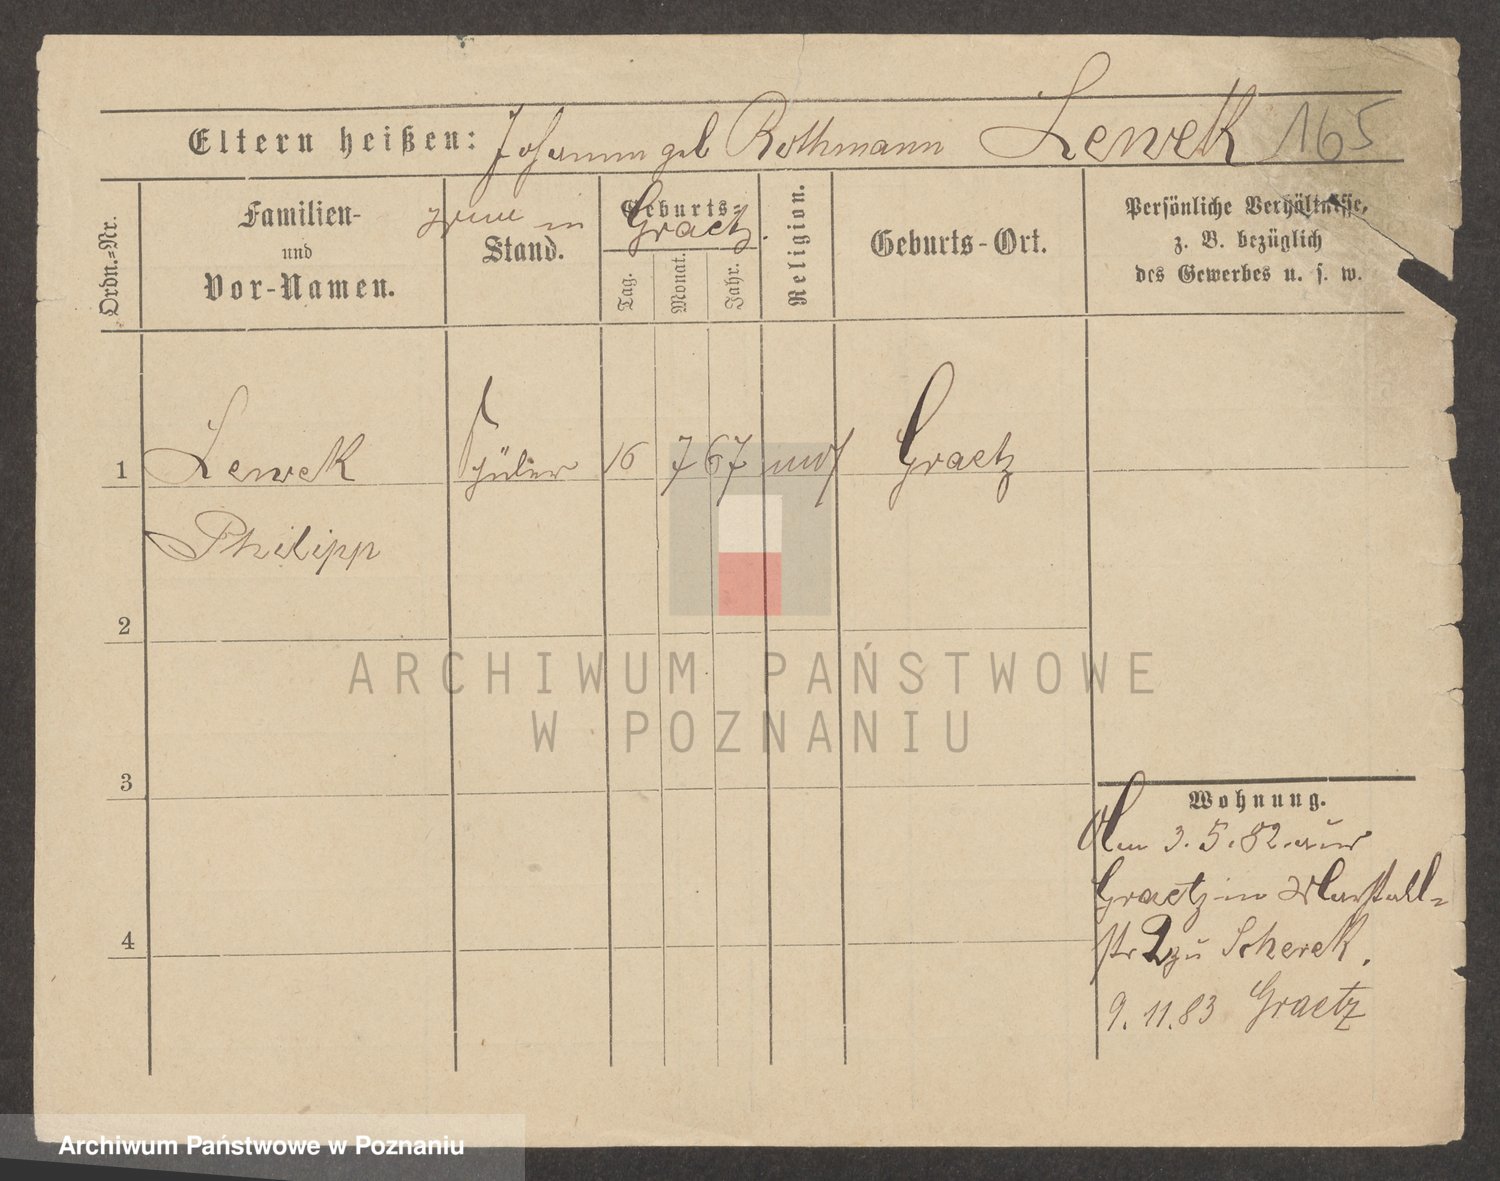 Lewek 165
Eltern heißen: Johann geb Rothmann
in Graetz
Ordn.=Nr.
Familien-
und
Vor-Namen.
Stand.
Geburts=
Tag.
Monat.
Jahr.
Religion.
Geburts-Ort.
Persönliche Verhältnisse,
z. B. bezüglich
des Gewerbes u. s. w.
1 Lewek Schüler 16 7 67 mos Graetz
Philipp
2
3
4
Wohnung.
Am 3. 5. 82. aus
Graetz in Marstall=
str 2 zu Scherek.
9. 11. 83 Graetz
ARCHIWUM PAŃSTWOWE
W POZNANIU
Archiwum Państwowe w Poznaniu